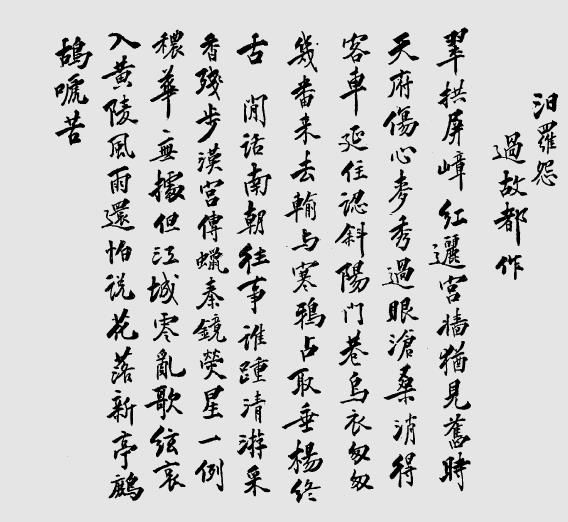 汨羅怨
過故都作
翠拱屏嶂紅邐宮墻猶見舊時
天府傷心麥秀過眼滄桑消得
客車延佇認斜陽門巷烏衣匆匆
幾番来去輸与寒鴉占取垂楊終
古 閒話南朝往事誰踵清游采
香殘步漢宮傳蠟秦鏡熒星一例
穠華無據但江城零亂歌絃哀
入黄陵風雨還怕说花落新亭鷓
鴣嗁苦